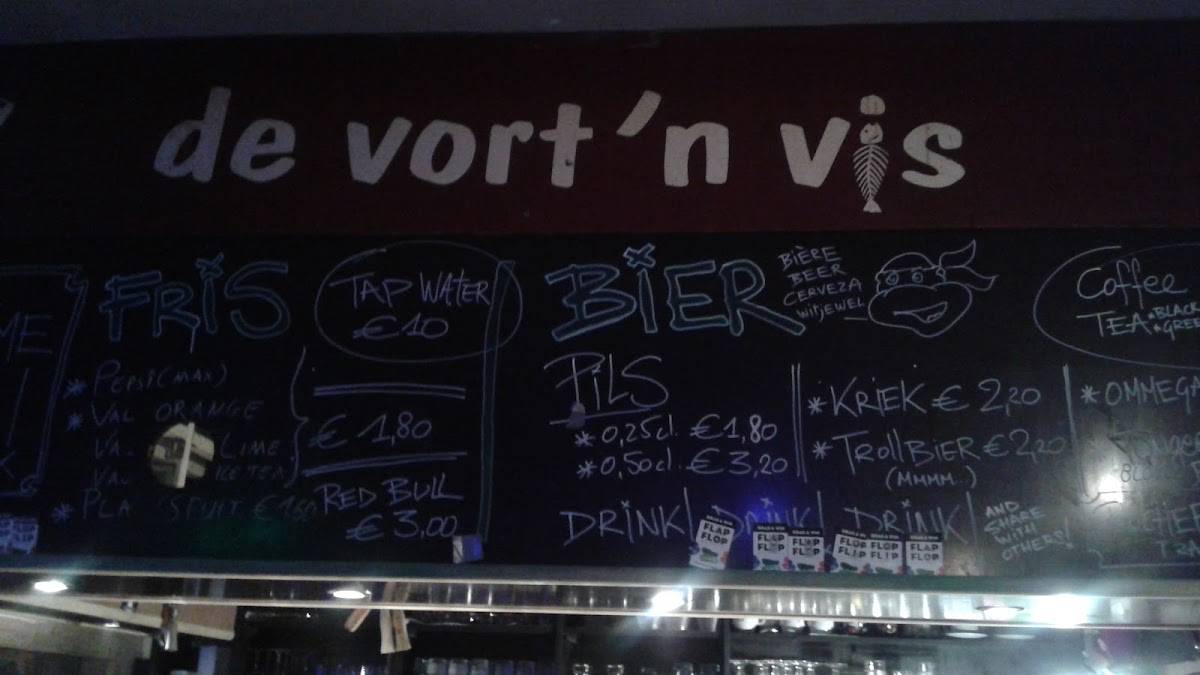 de vort'n vis
FRIS
TAP WATER
€10
* PEPSI (MAX)
* VAL ORANGE
LIME
ICE TEA
€ 1,80
* PLA SPUIT €1,60
RED BULL
€ 3,00
BIER
BIÈRE
BEER
CERVEZA
witjEWEL
PILS
* 0,25cl. €1,80
* 0,50cl. €3,20
* KRIEK € 2,20
* TROLLBIER €2,20
(MMMM..)
DRINK DRINK DRINK
AND
SHARE
WITH
OTHERS!
FLAP
FLOP
FLAP
FLOP
FLAP
FLOP
FLAP
FLOP
FLAP
FLOP
FLAP
FLOP
Coffee
TEA * BLACK
* GREE
* OMMEGA